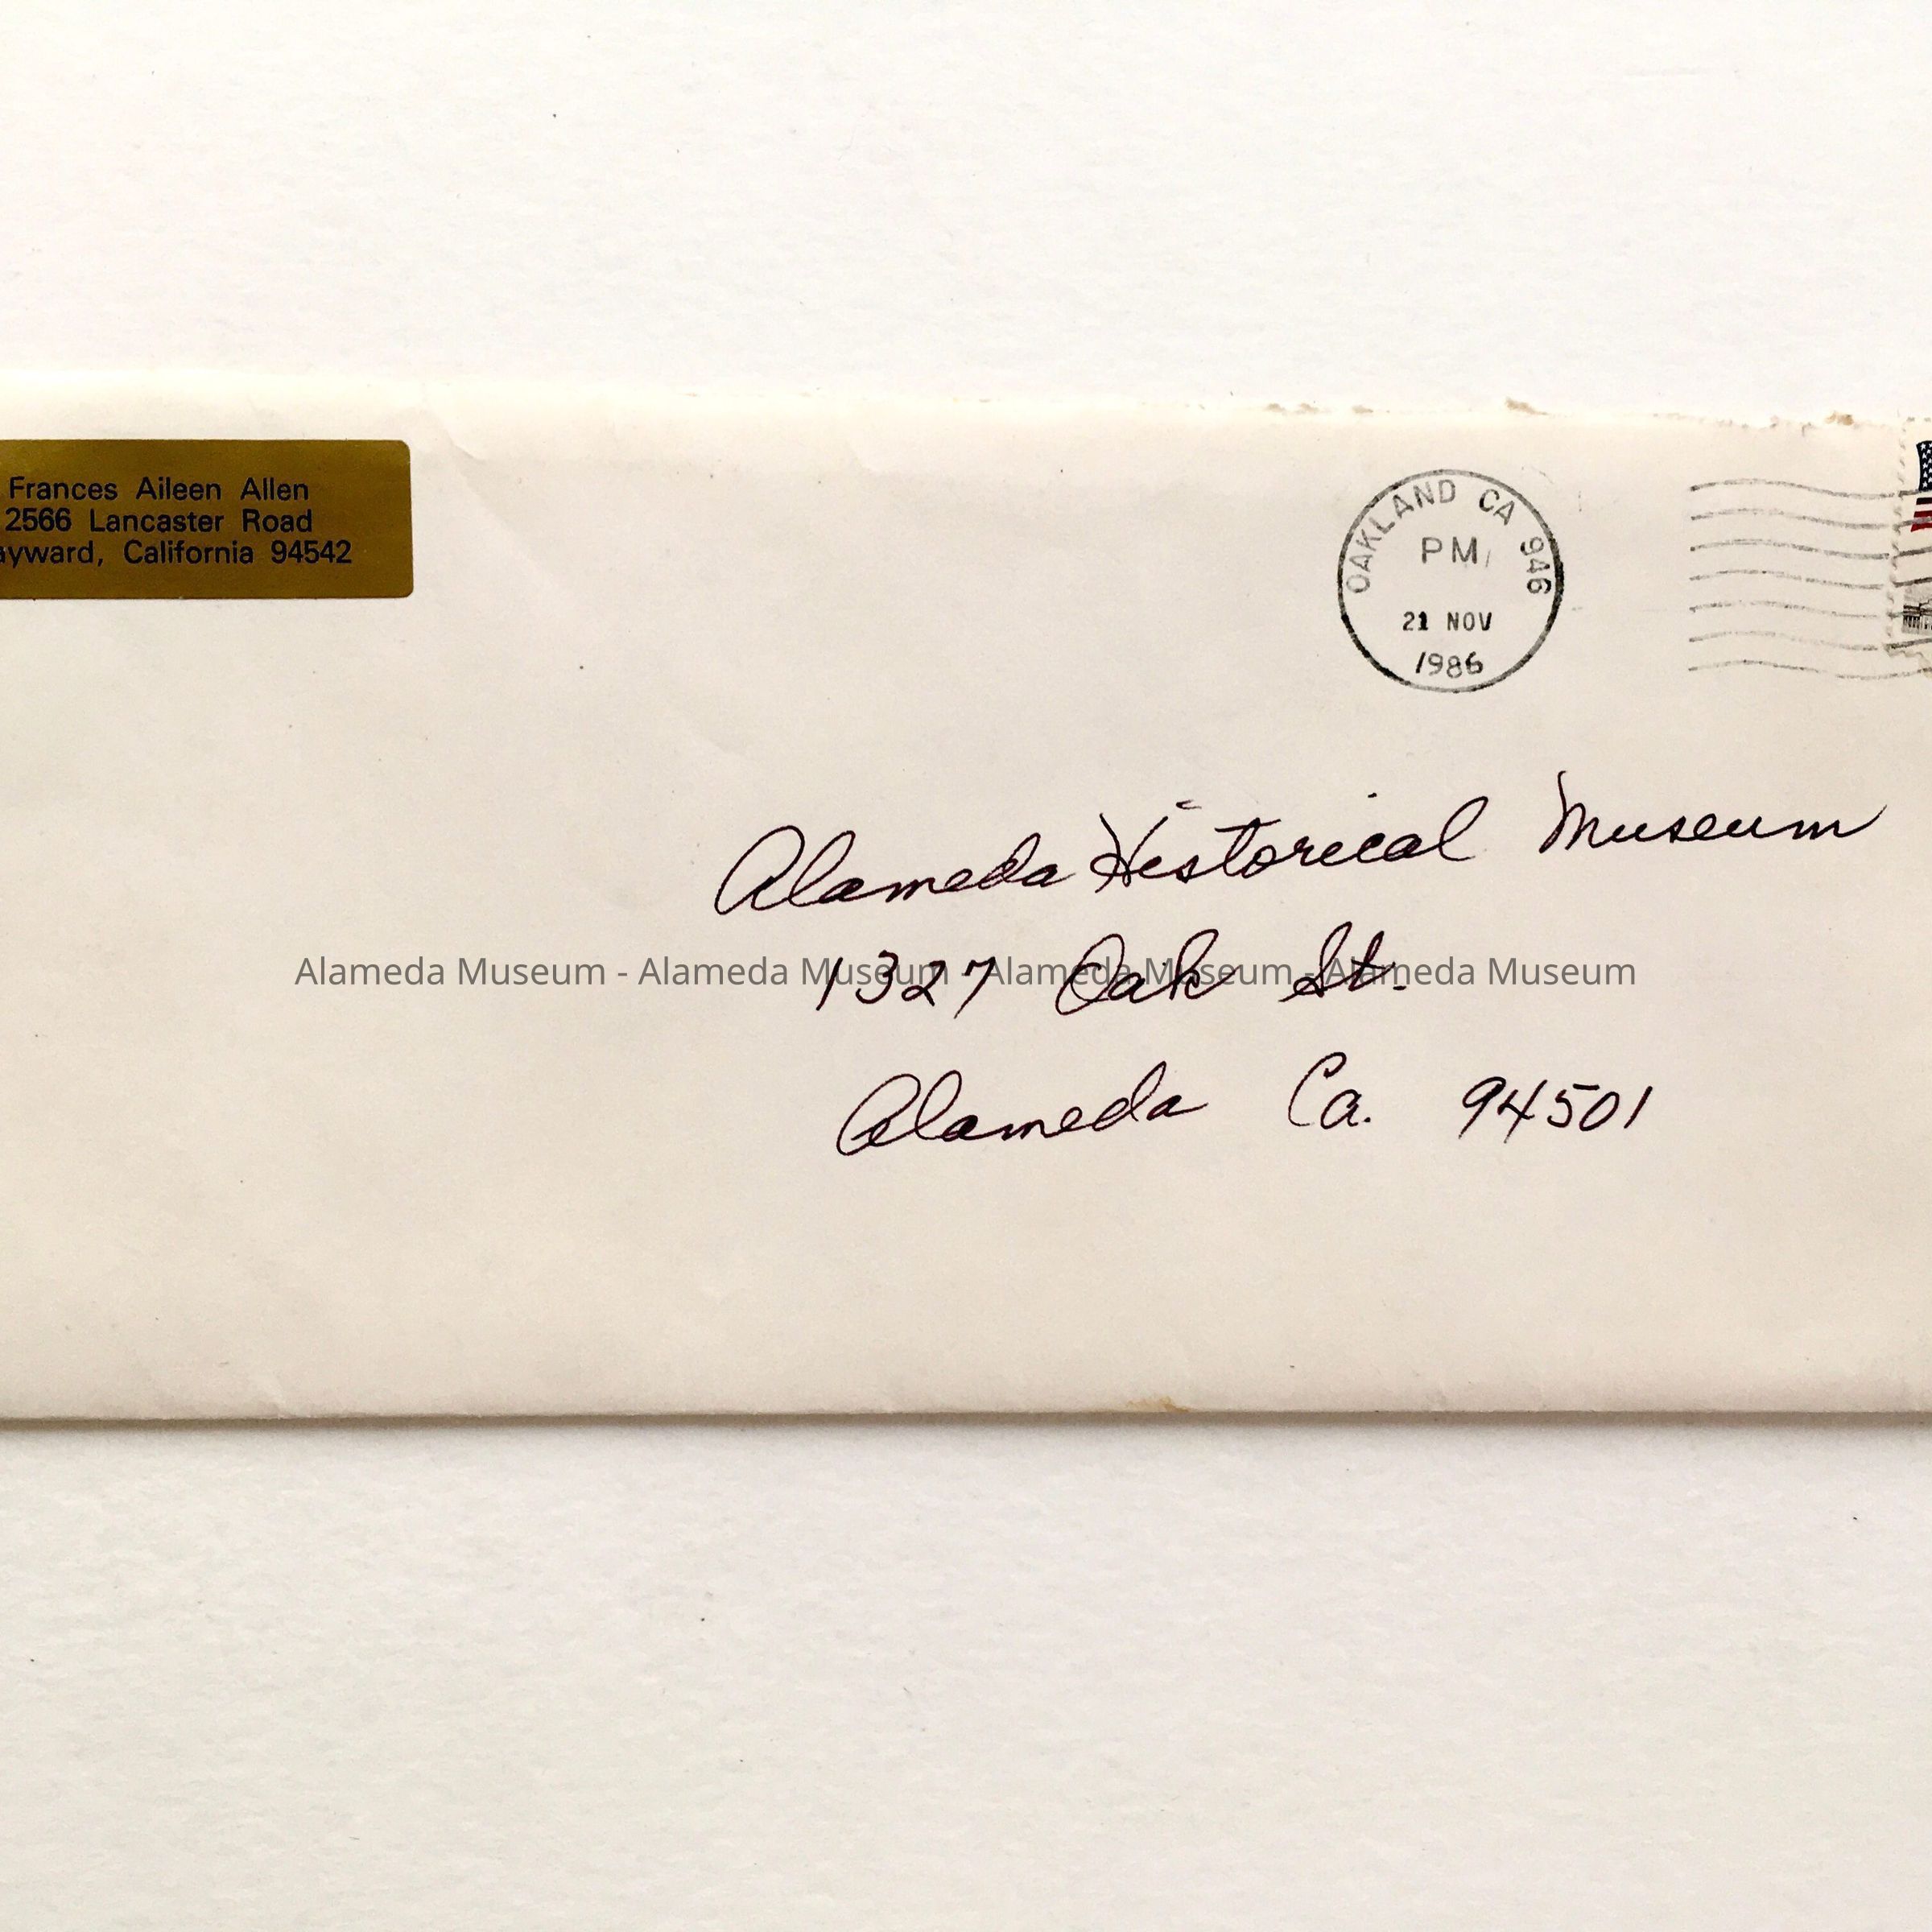 Frances Aileen Allen
2566 Lancaster Road
ayward, California 94542
OAKLAND CA 946
PM
21 NOV
1986
Alameda Historical Museum
1327 Oak St.
Alameda Ca. 94501
Alameda Museum - Alameda Museum - Alameda Museum - Alameda Museum